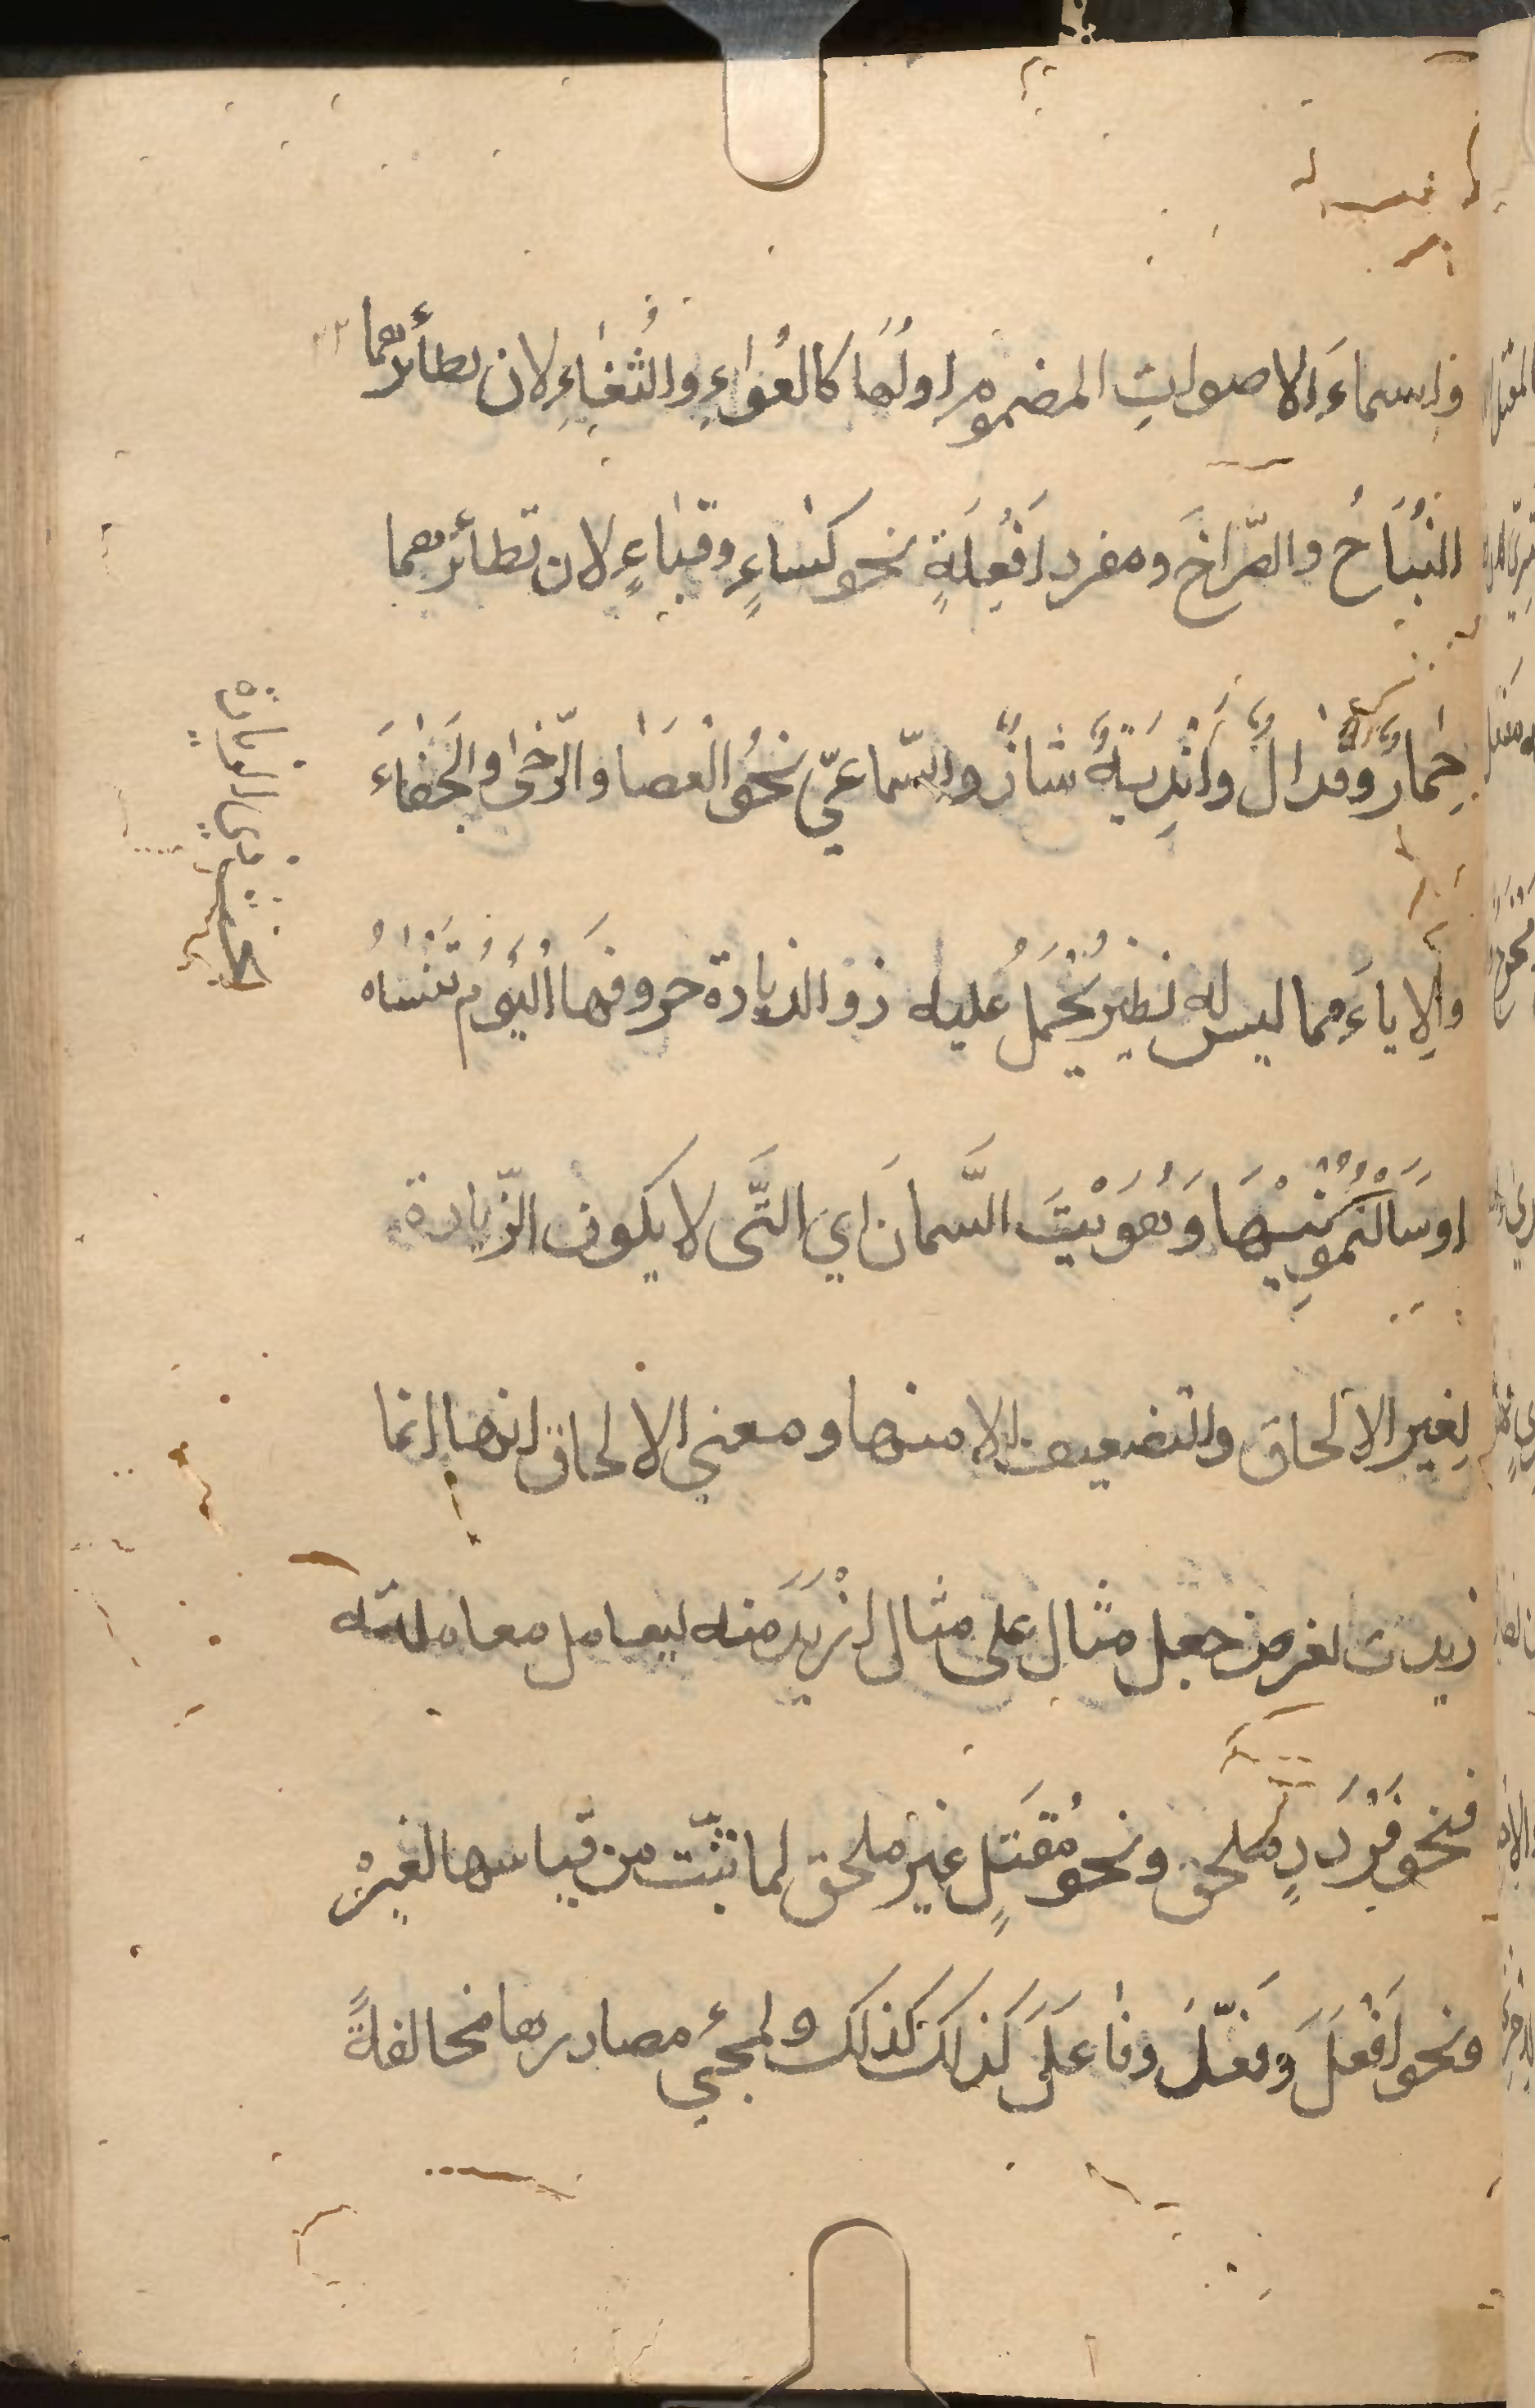 واسماءَ الاصواتِ المضموم اولُها كالعُواءِ والثُغاءِ لان نظائرهما
النُبَاحُ والصُّراخَ ومفرد اَفْعِلَةٍ نحو كساءٍ وقباءٍ لان نظائرهما
حِمارٌ وقذالٌ وَاَنْدِيَةٌ شاذٌ والسّماعيّ نحوُ العَصَا والرّحٰى والخَفٰاءَ
والاِباءَ مما ليس له نظير يُحْمَلُ عليه ذو الزيادة حروفها اليَوْمَ تَنْسَاهُ
او سَاَلْتُمُوْنِيْهَا وَهَوَيْتُ السَّمانَ اي التَّى لا يكون الزّيادة
لِغير الالحاق والتضعيف الا منها ومعنى الالحاق انها انما
زيدت لغرض جعل مثال على مثال اَزْيَدَ منه ليعامل معاملته
فنحو قَرْدَدٍ ملحق ونحو مُقْتَلٍ غير ملحق لما ثبت من قياسها لغيرْ
ونحو اَفْعَلَ وَفعّلَ وفاعَلَ كَذلك كذلك ولمجئ مصادرها مخالفةً